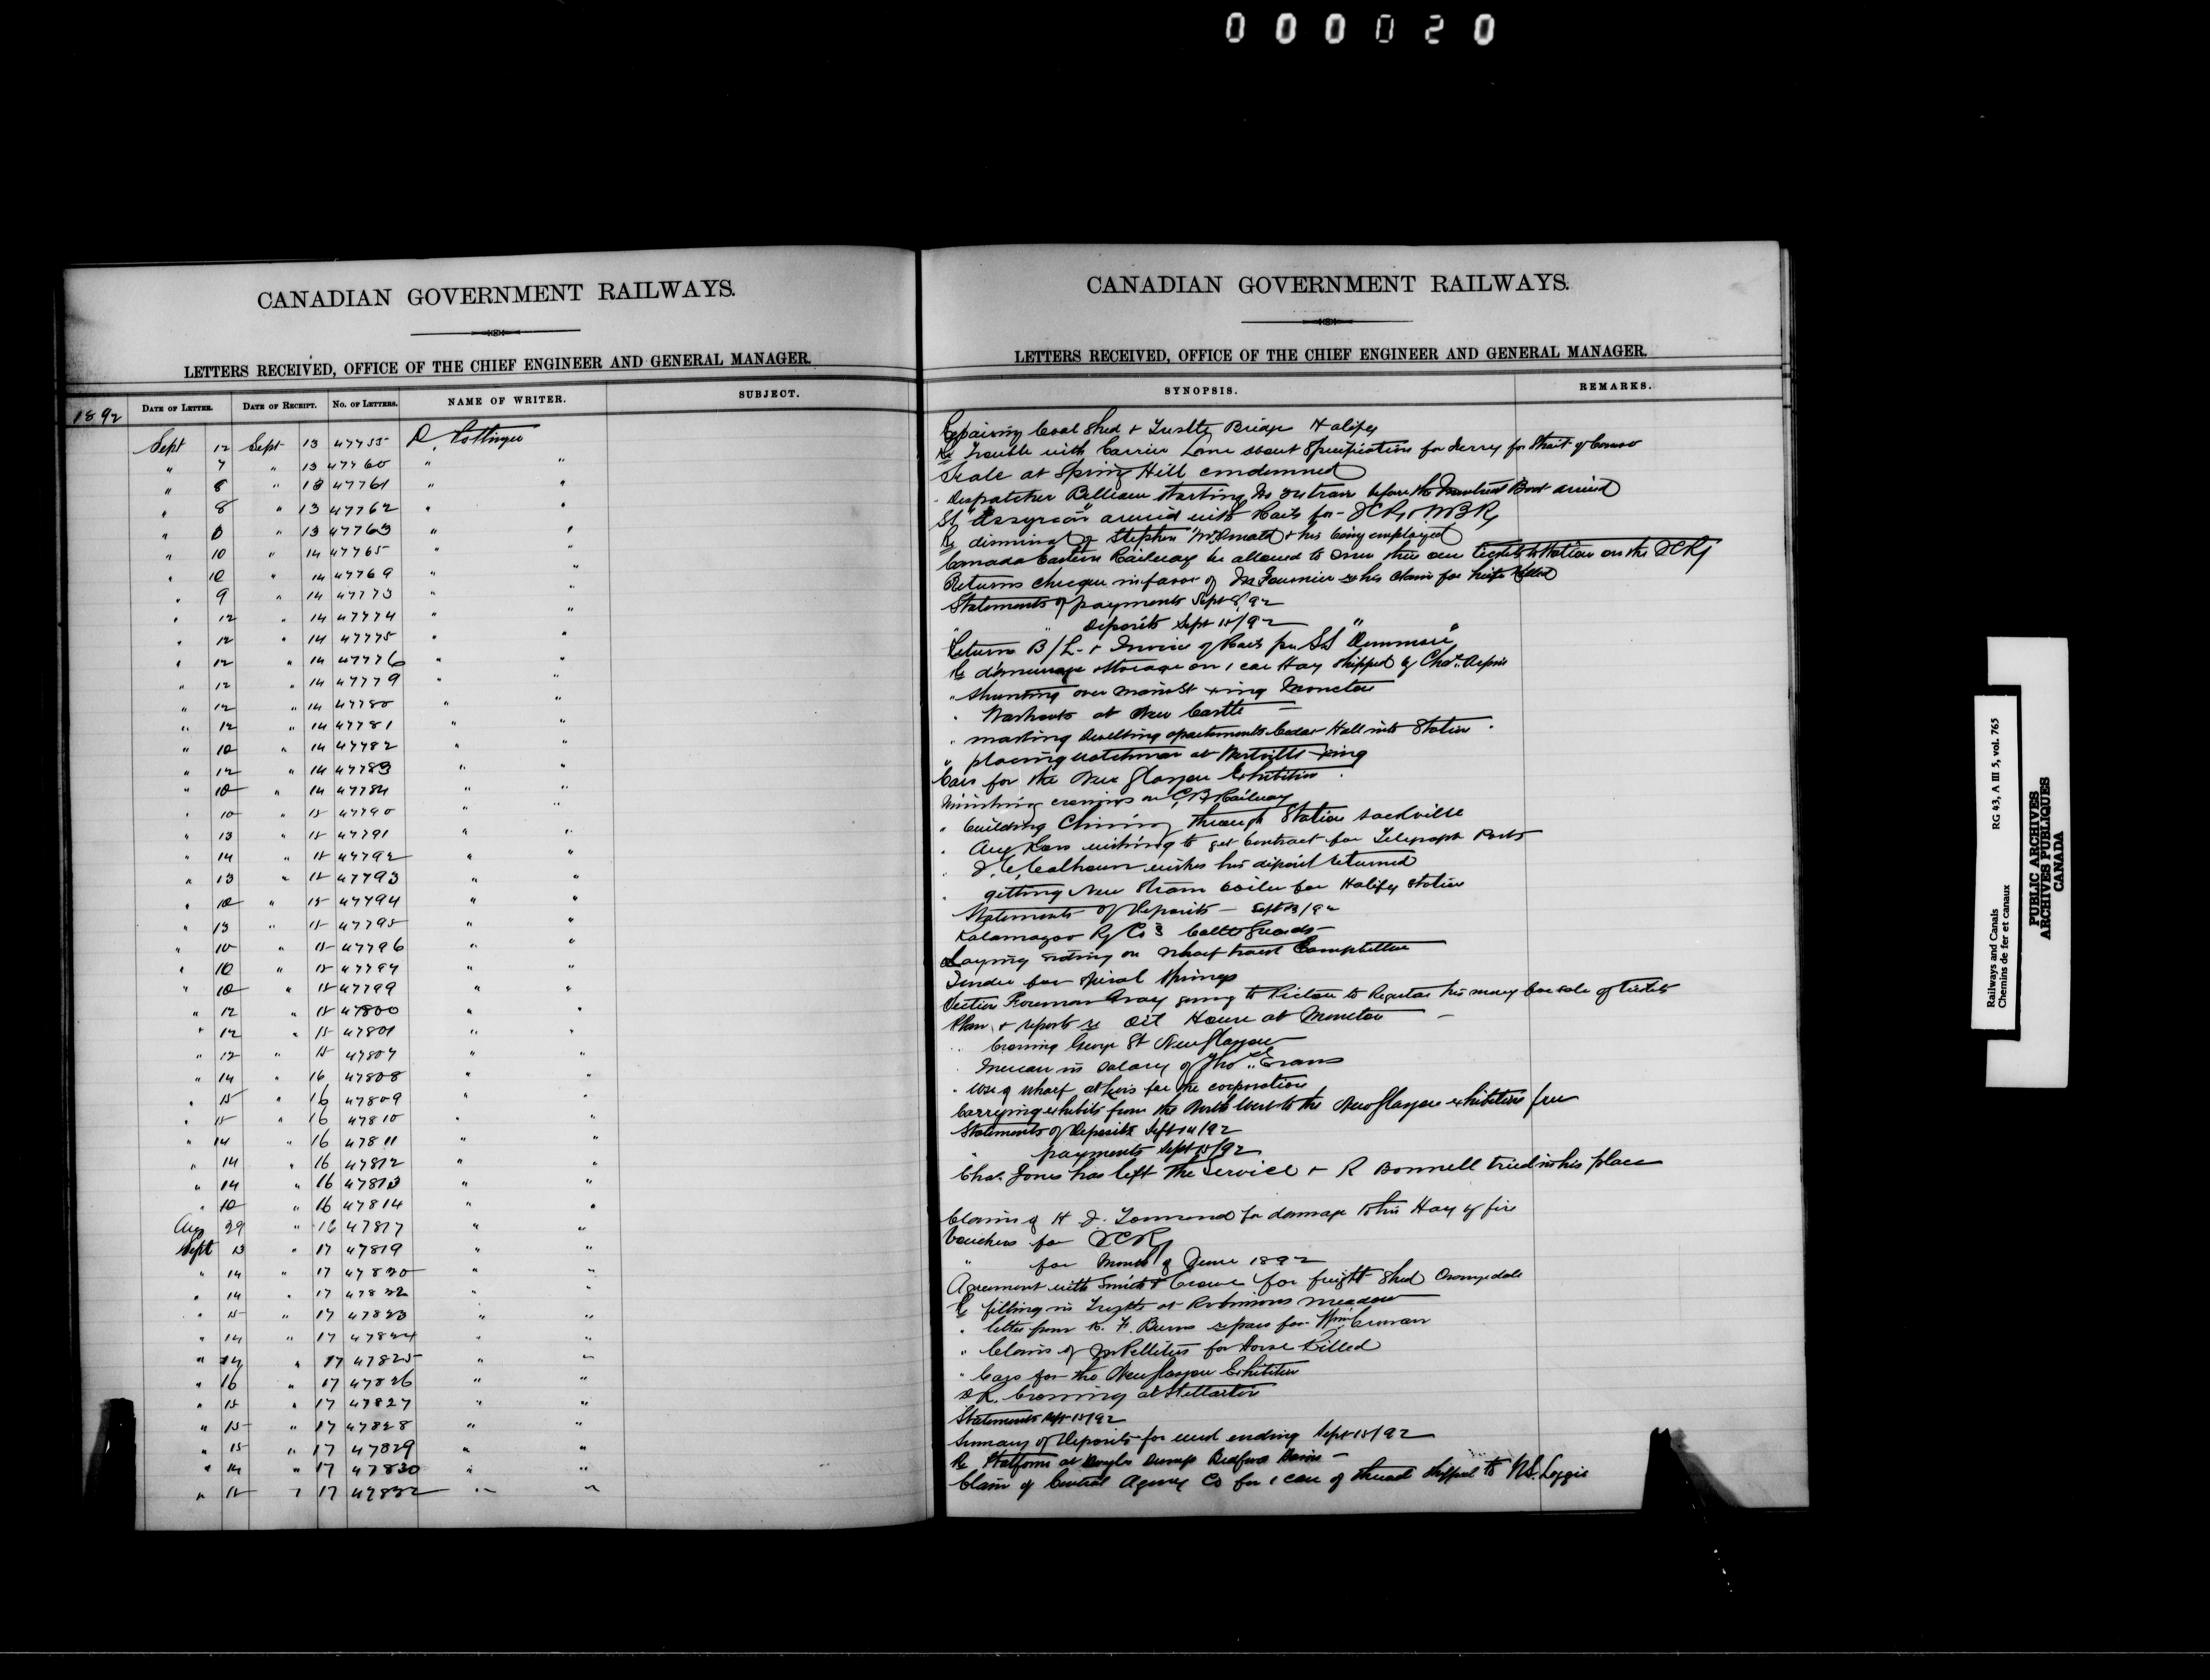 000020
CANADIAN GOVERNMENT RAILWAYS.
LETTERS RECEIVED, OFFICE OF THE CHIEF ENGINEER AND GENERAL MANAGER.
1892 DATE OF LETTER. DATE OF RECEIPT. NO. OF LETTERS. NAME OF WRITER. SUBJECT.
Sept 12 Sept 13 47755 D. Pottinger
" 7 " 13 47760 " "
" 8 " 13 47761 " "
" 8 " 13 47762 " "
" 8 " 13 47763 " "
" 10 " 14 47765 " "
" 10 " 14 47769 " "
" 9 " 14 47773 " "
" 12 " 14 47774 " "
" 12 " 14 47775 " "
" 12 " 14 47776 " "
" 12 " 14 47779 " "
" 12 " 14 47780 " "
" 12 " 14 47781 " "
" 10 " 14 47782 " "
" 12 " 14 47783 " "
" 10 " 14 47784 " "
" 10 " 15 47790 " "
" 13 " 15 47791 " "
" 14 " 15 47792 " "
" 13 " 15 47793 " "
" 10 " 15 47794 " "
" 13 " 15 47795 " "
" 10 " 15 47796 " "
" 10 " 15 47797 " "
" 10 " 15 47799 " "
" 12 " 15 47800 " "
" 12 " 15 47801 " "
" 12 " 15 47807 " "
" 14 " 16 47808 " "
" 15 " 16 47809 " "
" 15 " 16 47810 " "
" 14 " 16 47811 " "
" 14 " 16 47812 " "
" 14 " 16 47813 " "
" 10 " 16 47814 " "
Aug 29 " 16 47817 " "
Sept 13 " 17 47819 " "
" 14 " 17 47820 " "
" 14 " 17 47822 " "
" 15 " 17 47823 " "
" 14 " 17 47824 " "
" 14 " 17 47825 " "
" 16 " 17 47826 " "
" 15 " 17 47827 " "
" 15 " 17 47828 " "
" 15 " 17 47829 " "
" 14 " 17 47830 " "
" 15 " 17 47832 " "
CANADIAN GOVERNMENT RAILWAYS.
LETTERS RECEIVED, OFFICE OF THE CHIEF ENGINEER AND GENERAL MANAGER.
SYNOPSIS. REMARKS.
Repairing Coal Shed & Trestle Bridge Halifax
Re Trouble with Carrier Laine about Specification for Ferry for Strait of Canso
Scale at Spring Hill condemned
" Despatcher starting No train before the Montreal Boat arrived
SS "Assyrian" arrived with Rails for
Re dismissal of Stephen McDonald & his being employed
Canada Eastern Railway be allowed to issue their own tickets to Station on the ICRy
Returns cheque in favor of Fournier re his claim for heifer killed
Statements of payments Sept 8/92
" " Deposits Sept 10/92
Returns B/L & Invoice of Rails per SS
Re demurrage storage on 1 car Hay shipped by Chas.
" Shunting over Main St xing Moncton
" Washouts at New Castle
" making dwelling apartments Cedar Hall into Station
" placing watchman at Westville xing
Cars for the New Glasgow Exhibition
crossings on CB Railway
" building Chimney through Station Sackville
" Aug wishing to get Contract for Telegraph Posts
" J. C. Calhoun wishes his deposit returned
" getting New Steam boiler for Halifax Station
Statements of Deposits Sept 13/92
Kalamazoo Ry Co's Cattle Guards
Laying siding on wharf track Campbellton
Tender for spiral springs
Section Foreman Gray going to Pictou to for sale of tickets
Plan & reports re Oil House at Moncton
" Crossing George St New Glasgow
" Increase in salary of Thos. Evans
" Use of wharf at Levis for the corporation
Carrying exhibits from the North West to the New Glasgow exhibition free
Statements of Deposits Sept 14/92
" payments Sept 15/92
Chas. Jones has left the Service & R Bonnell tried in his place
Claim of H J. Townsend for damage to his Hay by fire
Vouchers for ICRy
" for month of June 1892
Agreement with Smith & Crowe for freight Shed Orangedale
Re filling in Trestle at Robinsons meadow
" letter from K. F. Burns re pass for Wm.
" Claim of Pelletier for Horse Killed
" Cars for the New Glasgow Exhibition
Crossing at Stellarton
Statements Sept 15/92
Summary of Deposits for week ending Sept 15/92
Re Platform at Dump Bedford Basin
Claim of Central Agency Co for 1 case of thread shipped to Loggie
Railways and Canals
Chemins de fer et canaux
RG 43, A III 5, vol. 765
PUBLIC ARCHIVES
ARCHIVES PUBLIQUES
CANADA